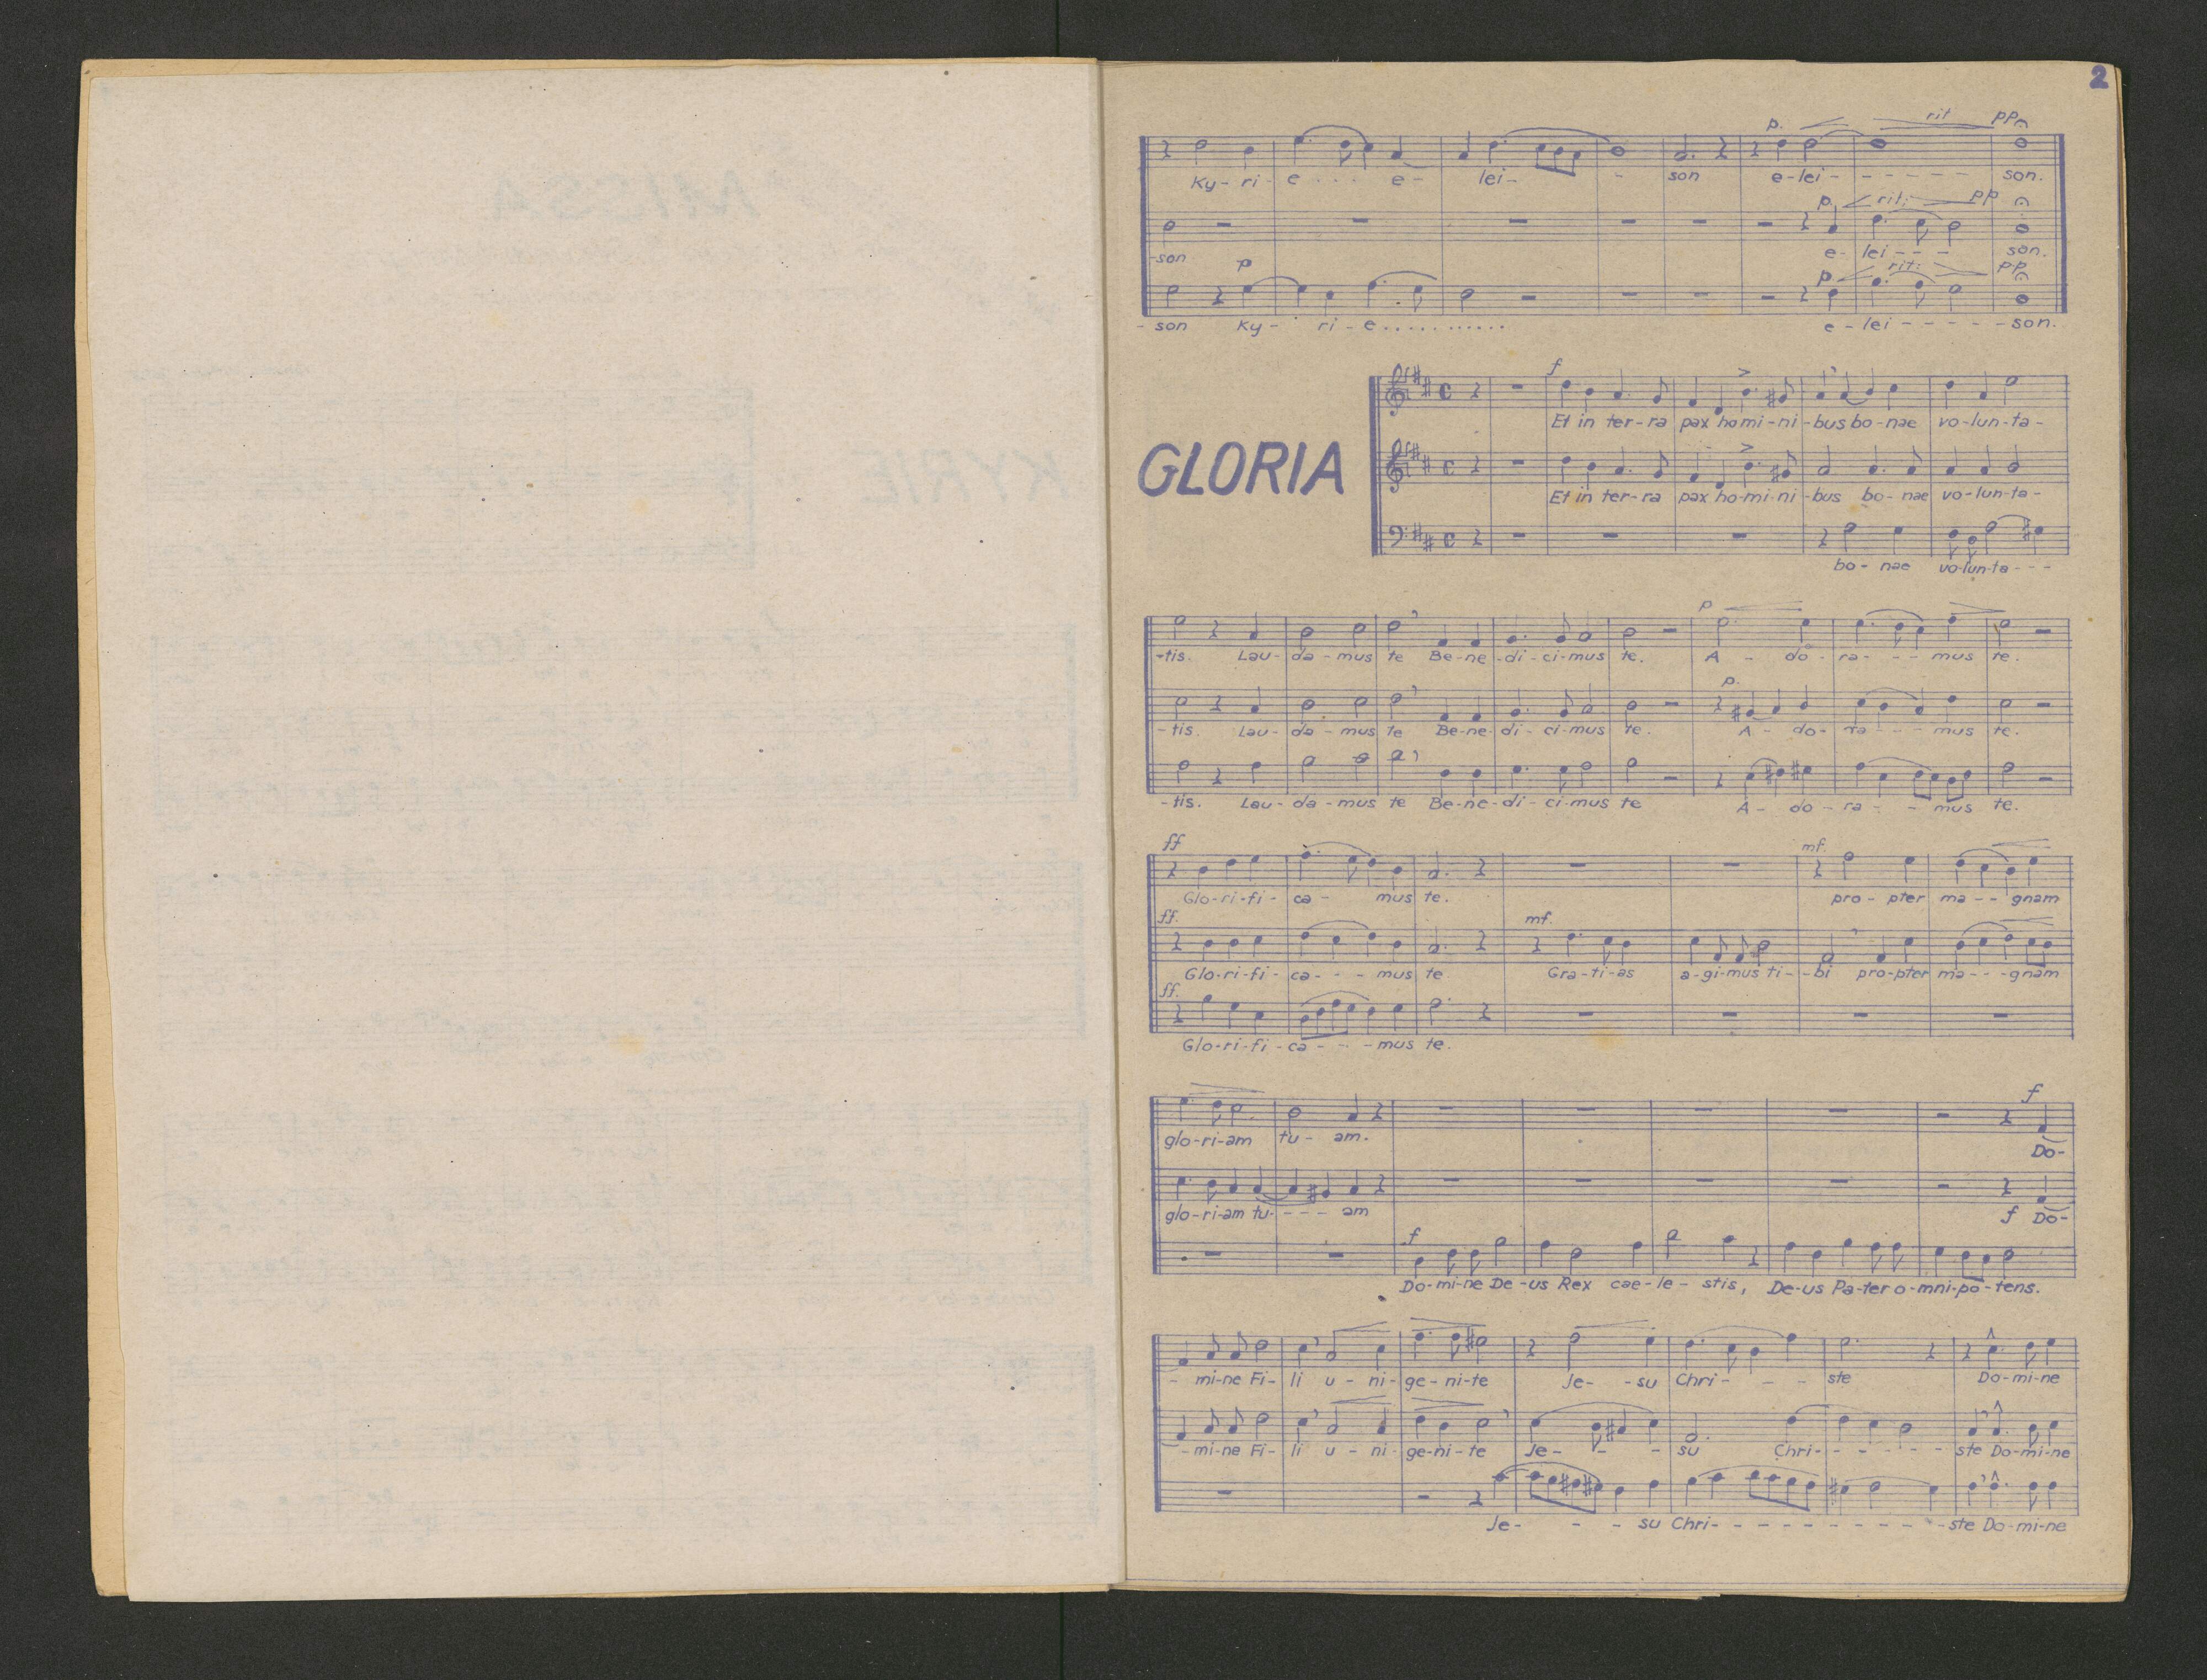 2
p. rit pp
Ky - ri - e . . . e - lei - - son e - lei - - - - - - son.
p. rit: pp
-son e - lei - - - son.
p p rit: pp
- son Ky - ri - e . . . . . . . . . . . e - lei - - - - - son.
GLORIA
f
Et in ter - ra pax homi - ni - bus bo - nae vo - lun - ta -
Et in ter - ra pax ho - mi - ni - bus bo - nae vo - lun - ta -
bo - nae vo - lun - ta - - -
p
-tis. Lau - da - mus te Be - ne - di - ci - mus te. A - do - ra - - - mus te.
p.
- tis. Lau - da - mus te Be - ne - di - ci - mus te. A - do - ra - - - mus te.
- tis. Lau - da - mus te Be - ne - di - ci - mus te A - do - ra - - mus te.
ff mf.
Glo - ri - fi - ca - mus te. pro - pter ma - - gnam
ff. mf.
Glo - ri - fi - ca - - - mus te. Gra - ti - as a - gi - mus ti - - bi pro - pter ma - - - gnam
ff.
Glo - ri - fi - ca - - - mus te.
f
glo - ri - am tu - am. Do -
glo - ri - am tu - - - - am f Do -
f
Do - mi - ne De - us Rex cae - le - stis, De - us Pa - ter o - mni - po - tens.
- mi - ne Fi - li u - ni - ge - ni - te Je - - su Chri - - - ste Do - mi - ne
- mi - ne Fi - li u - ni - ge - ni - te Je - - - su Chri - - - - - - ste Do - mi - ne
Je - - - su Chri - - - - - - - - - - ste Do - mi - ne